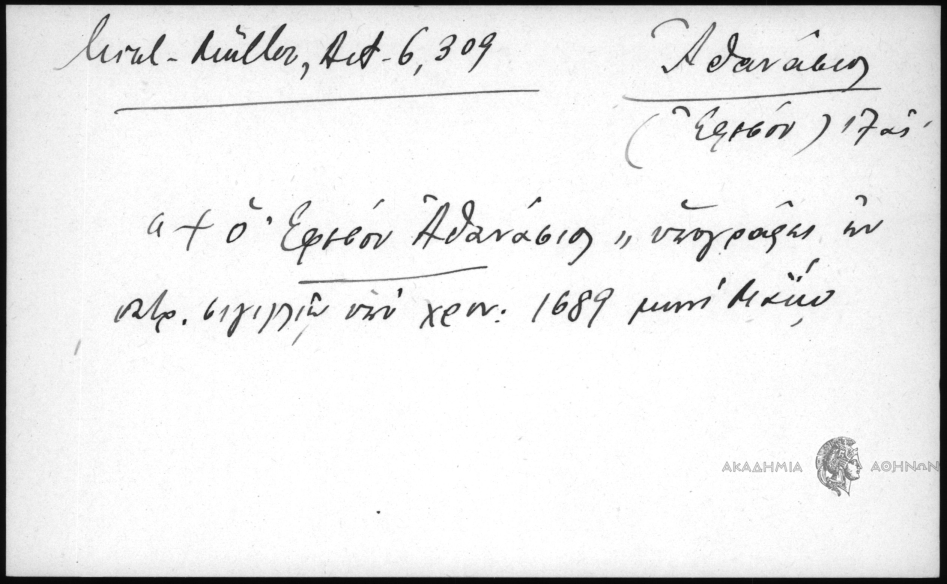 Mikl-Müller, Act. 6, 309
Ἀθανάσιος
(Ἐφέσου) 17ος
" + ὁ Ἐφέσου Ἀθανάσιος " ὑπογράφει ἐν
πατρ. σιγιλλίῳ ὑπὸ χρον: 1689 μηνὶ Μαΐῳ
ΑΚΑΔΗΜΙΑ ΑΘΗΝΩΝ